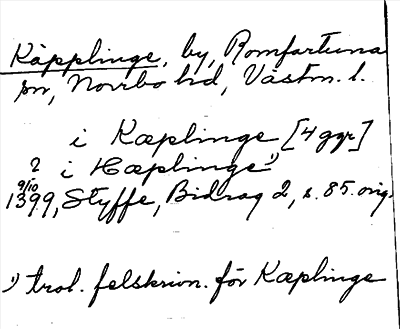 Käpplinge, by, Romfartuna
sn, Norrbo hd, Västm. l.
i Kæplinge [4 ggr]
? i Hæplinge¹)
9/10
1399, Styffe, Bidrag 2, s. 85. orig.
¹) trol. felskrivn. för Kæplinge